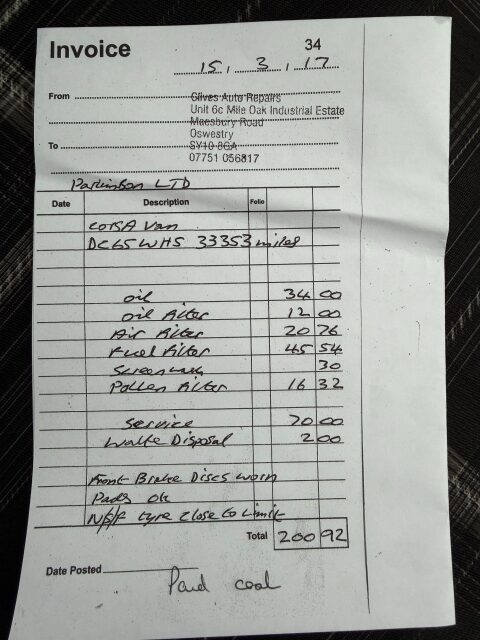 Invoice
34
15 . 3 . 17
From
Clives Auto Repairs
Unit 6c Mile Oak Industrial Estate
Maesbury Road
Oswestry
To
SY10 8GA
07751 056817
Parkinson LTD
Date Description Folio
corsa van
DC65WHS 33353 miles
oil 34 00
oil Filter 12 00
Air Filter 20 76
Fuel Filter 45 54
Screenwash 30
Pollen Filter 16 32
Service 70 00
Waste Disposal 2 00
Front Brake Discs worn
Pads ok
N/S/F tyre close to Limit
Total 200 92
Date Posted
Paid